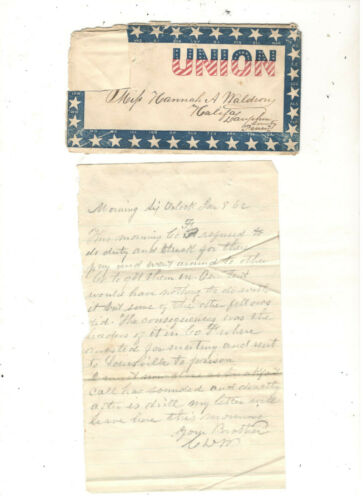 UNION
Miss Hannah A Waldron
Halifax
Dauphin
County
Penna
Morning Six Oclock Jan 8 62
This morning Co F refused to
do duty and struck for their
pay and went around to other
Co to ask them in Our
would have nothing to do with
it but some of the other fellows
did. The consequences was the
leaders of it in Co F where
arrested for mutiny and sent
to Louisville to prison
I must now close as for
call has sounded and directly
after is drill my letter will
leave here this morning
Your Brother